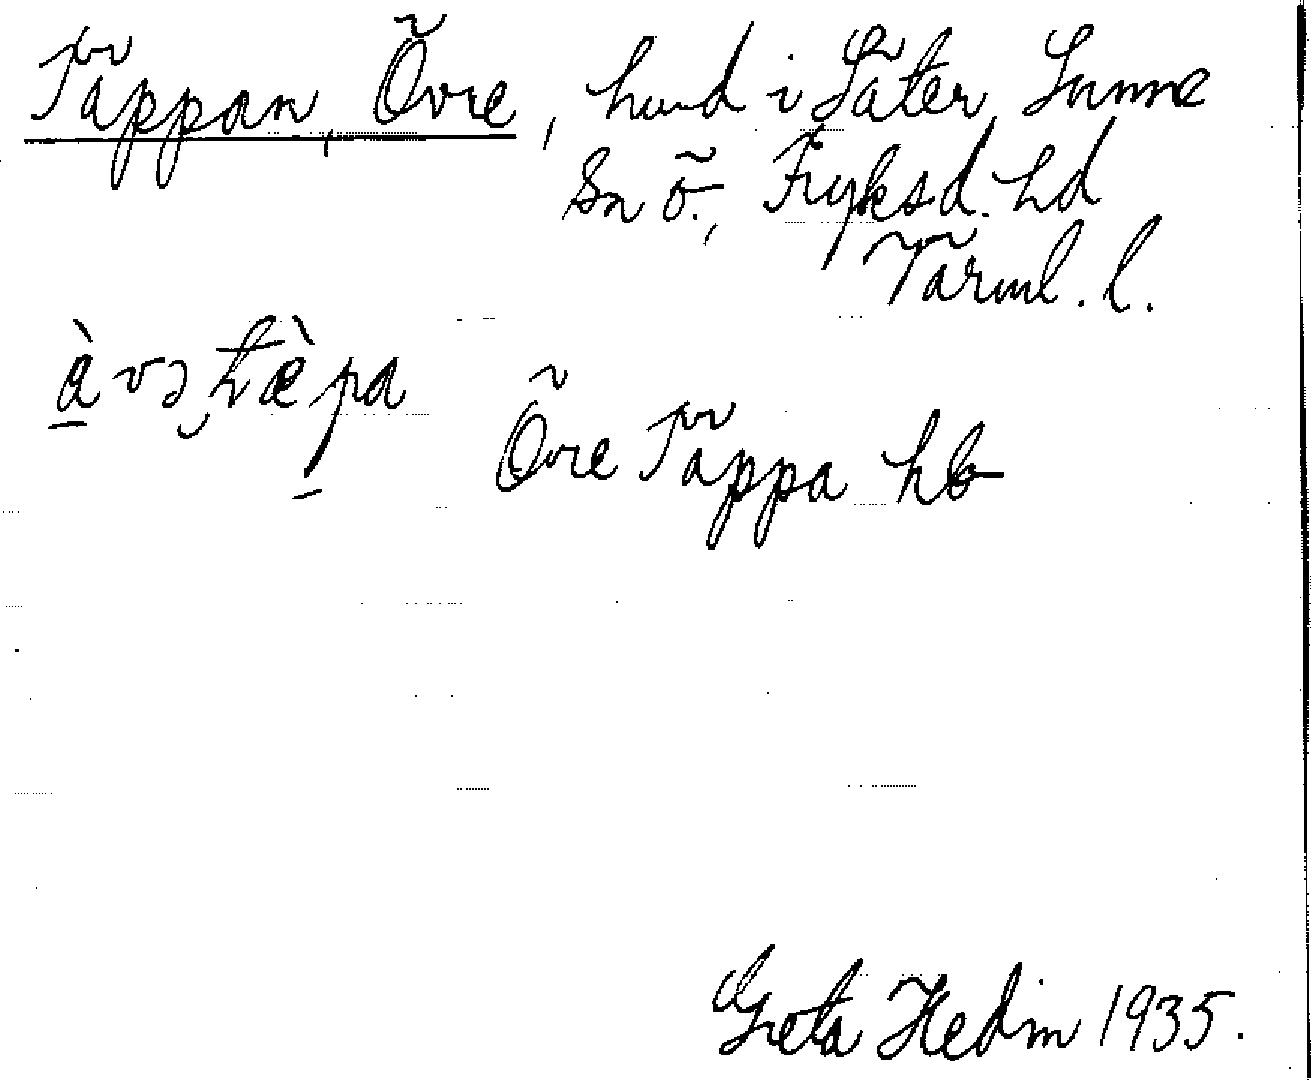 Täppan, Övre, hund i Säter, Sunne
Sn ö., Fryksd. hd
Värml. l.
Övre Täppa hb
Greta Hedin 1935.